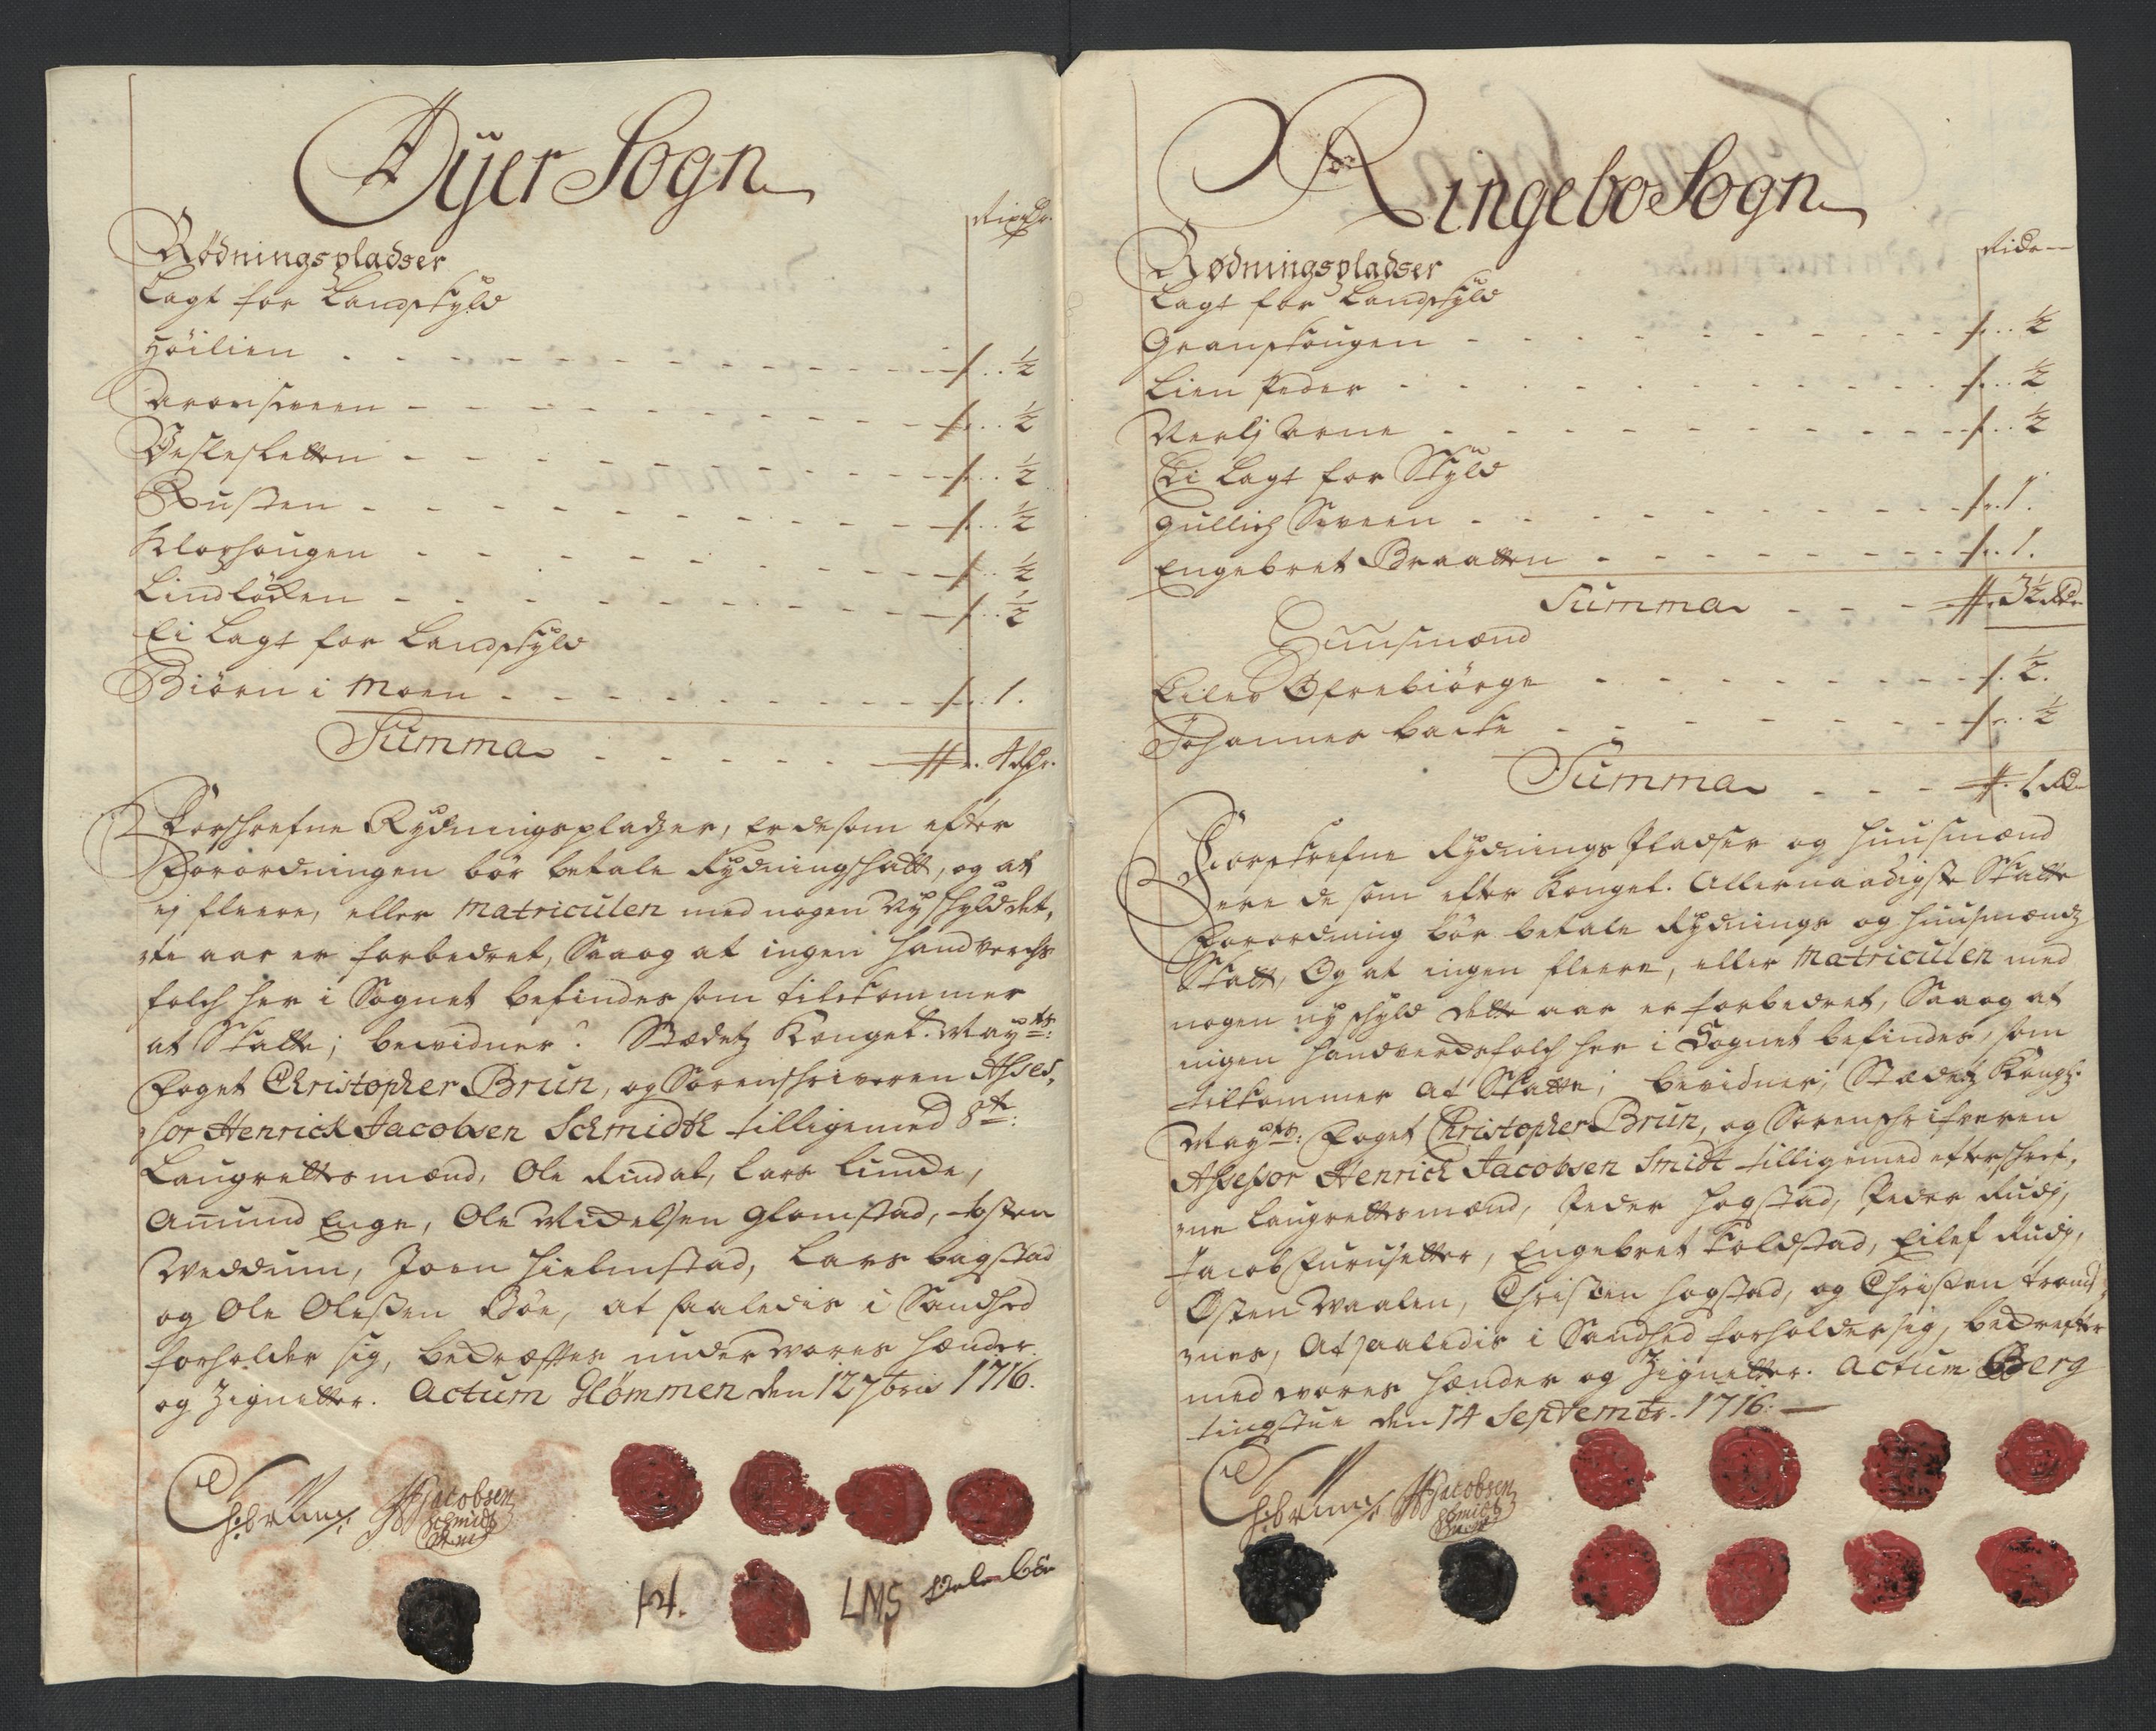 Øÿer Sogn
Rixdr.
Rödningspladser
Lagt for Landskyld
Höilien - - - 1/2
Aronsveen - - - 1/2
Veslesletten - - - 1/2
Rusten - - - 1/2
Klophougen - - - 1/2
Lindlöcken - - - 1/2
Ei Lagt for Landskyld
Biörn i Moen - - - 1.
Summa - - - 4 Rdr.
Forschrefne Rydningspladzer, er de som efter
Forordningen bör betale Rydningschatt, og at
ej fleere, eller Matriculen med nogen Ny Schyld det,
te aar er forbedret, Saa og at ingen Handverchs
folch her i Sognet befindes som tilkommer
at Skatte; bevidner: Stædetz Kongel. Mayts:
Foget Christopher Brun, og Sorenschriveren Asses,
sor Henrick Jacobsen Schmidth tilligemed 8te:
Laugrettesmænd, Ole Rindal, Lars Lunde,
Amund Enge, Ole Mickelsen Glomstad, Tosten
Weddum, Joen Hielmstad, Lars bagstad
og Ole Olessen Böe, at saaledis i Sandhed
forholder sig, bekræfter under vores Hænder
og Zignetter. Actum Hömmen den 12 7bris 1716.
Chr: brun
HJacobsen
Schmidt
LMS
Ringebo Sogn
Rixdr
Rødningspladser
Lagt for Landskyld
Granskougen - - - 1/2
Lien Peder - - - 1/2
Ei Lagt for Skyld
Gullich Sveen - - - 1.
Engebret Braatten - - - 1.
Summa - - - 3 1/2 Rdr
Huusmænd
Eilev Ofrebiörge - - - 1/2.
Johannes backe - - - 1/2
Summa - - - 1 Rdr
Forskrefne Rydnings Pladser og Huusmænd
ere de som efter Kongel. Allernaadigste Skatte
Forordning bör betale Rydnings og Huusmændz
Skatt, Og at ingen fleere, eller Matriculen med
nogen ny schyld dette aar er forbedret, Saa og at
ingen Handverksfolch her i Sognet befindes, som
tilkommer at Skatte; bevidner, Stædetz Kongl:
Mayts: Foget Christopher Brun, og Sorenschrifveren
Assessor Henrick Jacobsen Smidt tilligemed efterschref,
ne Laugrettesmænd, Peder Hogstad, Peder Rudj,
Jacob Furusetter, Engebret Koldstad, Eilef Rudj,
Östen Waalen, Christen Hogstad, og Christen Trom,
nes, At saaledis i Sandhed forholder sig, bekrefter
med vores Hænder og Zignetter. Actum Berg
tingstue den 14 Septembr. 1716.
Chr: brun
HJacobsen
Schmidt